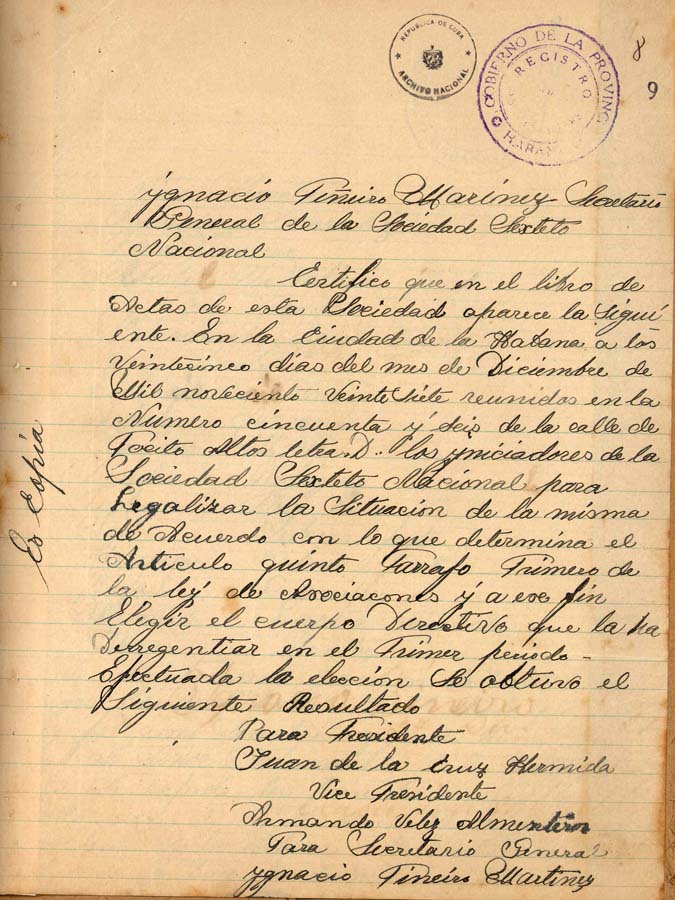 REPUBLICA DE CUBA
ARCHIVO NACIONAL
GOBIERNO DE LA PROVINC
REGISTRO
HABANA
8
9
Ygnacio Piñeiro Marinez Secretario
General de la Sociedad Sexteto
Nacional
Certifico que en el libro de
Actas de esta Sociedad aparece la sigui
ente. En la Ciudad de la Habana a los
Veintecinco dias del mes de Diciembre de
Mil noveciento Veinte siete reunidos en la
Numero cincuenta y seis de la calle de
Pocito Altos letra D.. los yniciadores de la
Sociedad Sexteto Nacional para
Legalizar la Situacion de la misma
de Acuerdo con lo que determina el
Articulo quinto Parrafo Primero de
la ley de Asociacones y a ese fin
Elegir el cuerpo Directivo que la ha
Derregentiar en el Primer periodo -
Efectuada la elección se obtuvo el
Siguiente Resultado
Para Presidente
Juan de la Cruz Hermida
Vice Presidente
Armando Velez Almenteros
Para Secretario General
Ygnacio Piñeiro Martinez
Es Copia